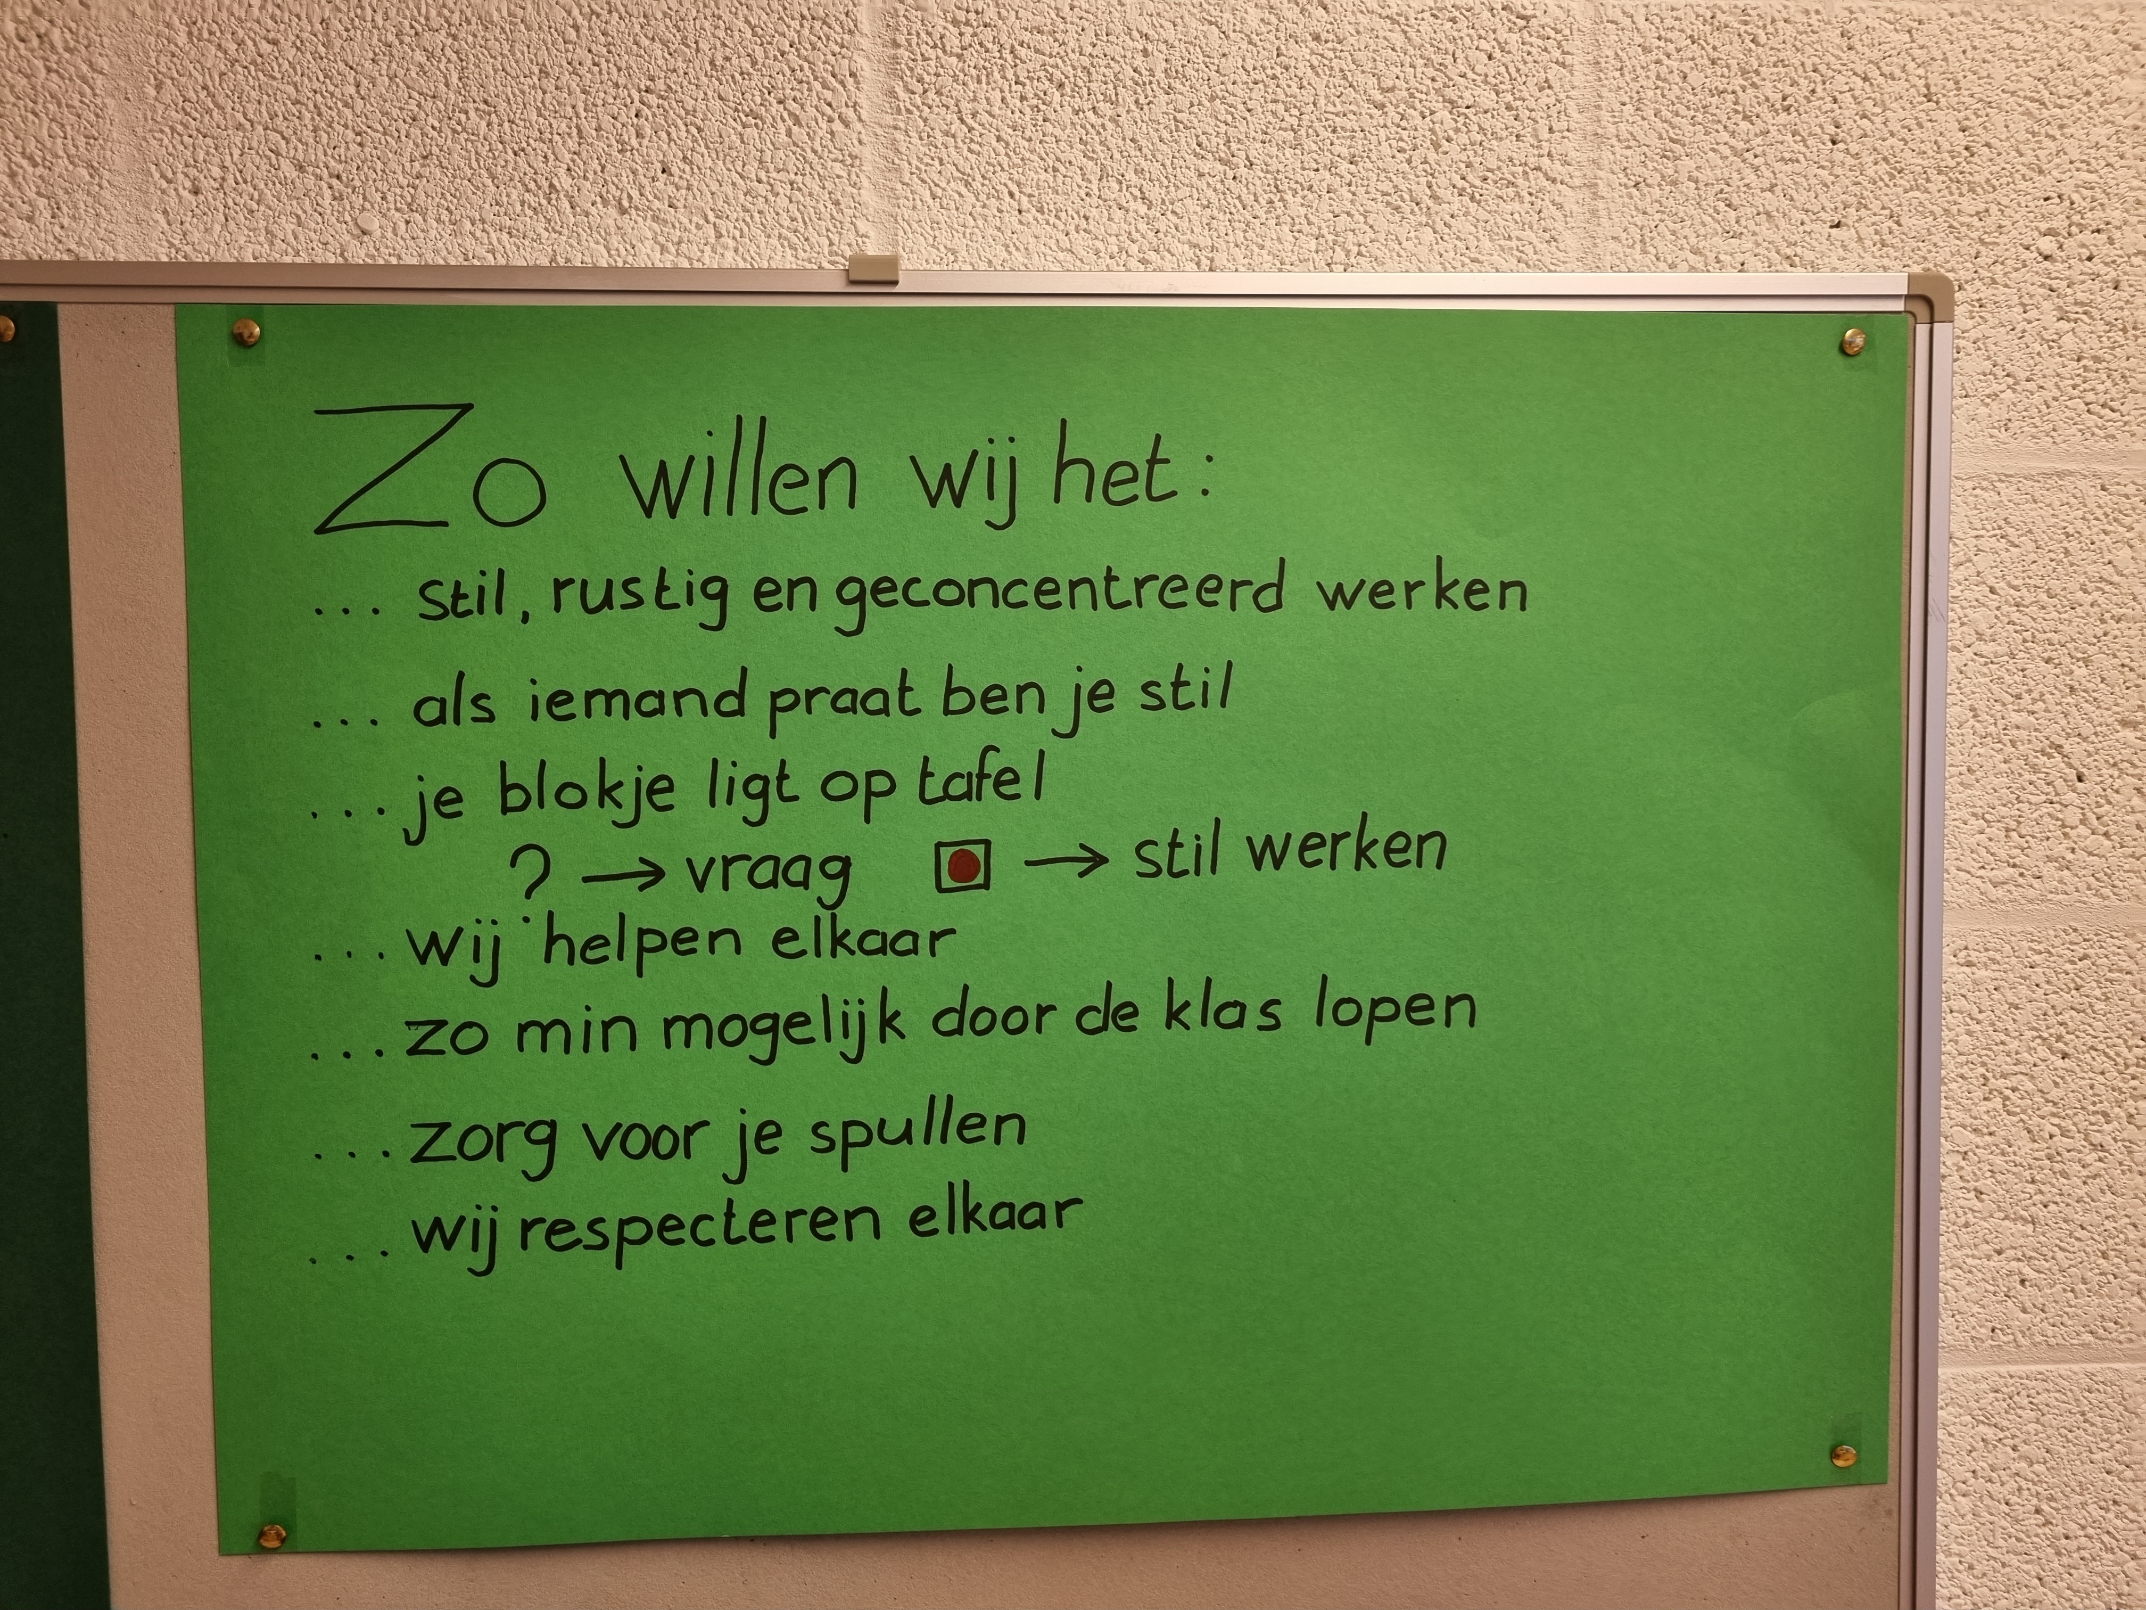 Zo willen wij het:
... stil, rustig en geconcentreerd werken
... als iemand praat ben je stil
... je blokje ligt op tafel
? → vraag → stil werken
... wij helpen elkaar
... zo min mogelijk door de klas lopen
... zorg voor je spullen
... wij respecteren elkaar